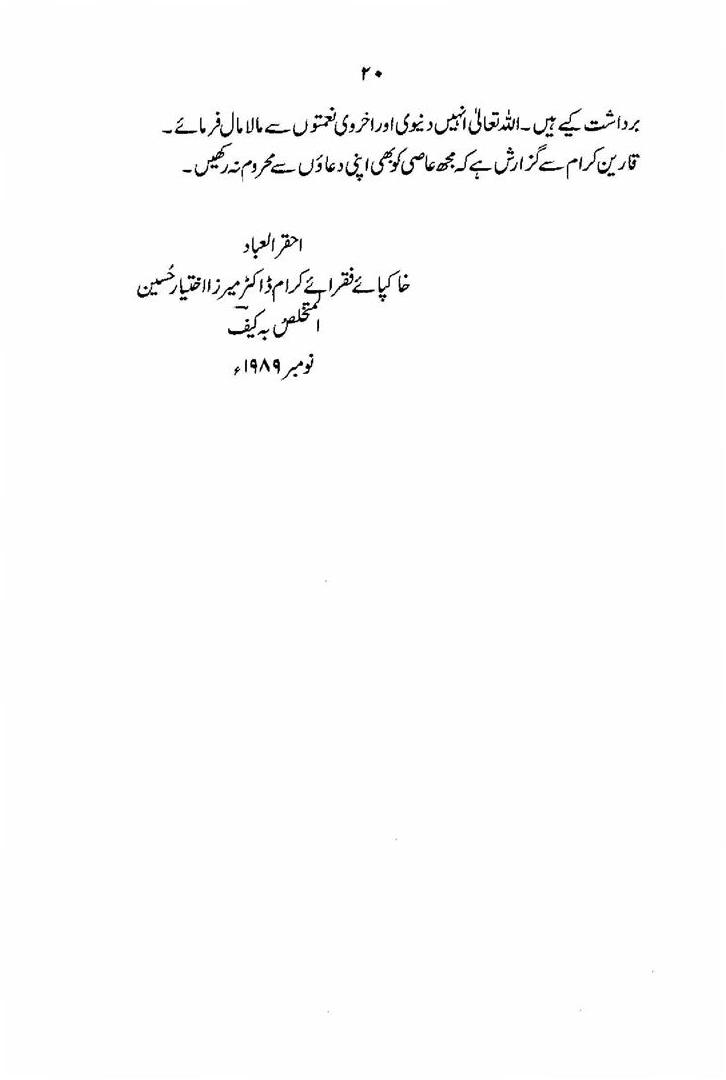 ۲۰
برداشت کیے ہیں۔ اللہ تعالیٰ انہیں دنیوی اور اخروی نعمتوں سے مالا مال فرمائے۔
قارین کرام سے گزارش ہے کہ مجھ عاصی کو بھی اپنی دعاؤں سے محروم نہ رکھیں۔
احقر العباد
خاکپائے فقرائے کرام ڈاکٹر میرزا اختیار حُسین
المتخلص بہ کیفؔ
نومبر ۱۹۸۹ء